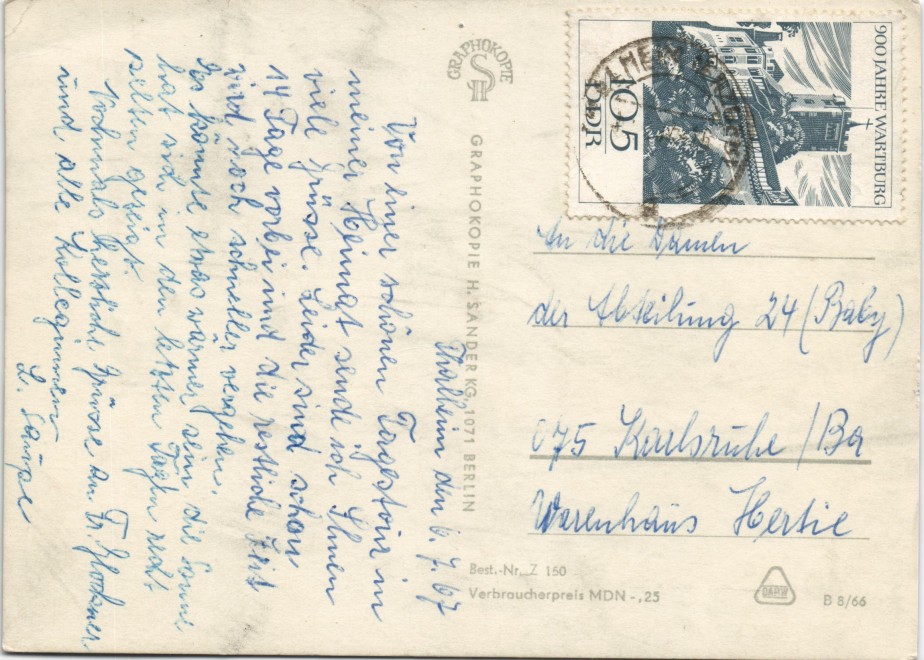 Thalheim den 6.7.67
Von einer schönen Tagestour in
meiner Heimat sende ich Ihnen
viele Grüsse. Leider sind schon
14 Tage vorbei und die restliche Zeit
wird noch schneller vergehen.
Es könnte etwas wärmer sein die Sonne
hat sich in den letzten Tagen recht
selten gezeigt.
Nochmals herzliche Grüsse an Fr.
und alle Kolleginnen
L.
GRAPHOKOPIE
H S
GRAPHOKOPIE H. SANDER KG, 1071 BERLIN
900 JAHRE WARTBURG
10+5
DDR
An die Damen
der Abteilung 24 (Baby)
675 Karlsruhe/Ba
Warenhaus Hertie
Best.-Nr. Z 150
Verbraucherpreis MDN -,25
B 8/66